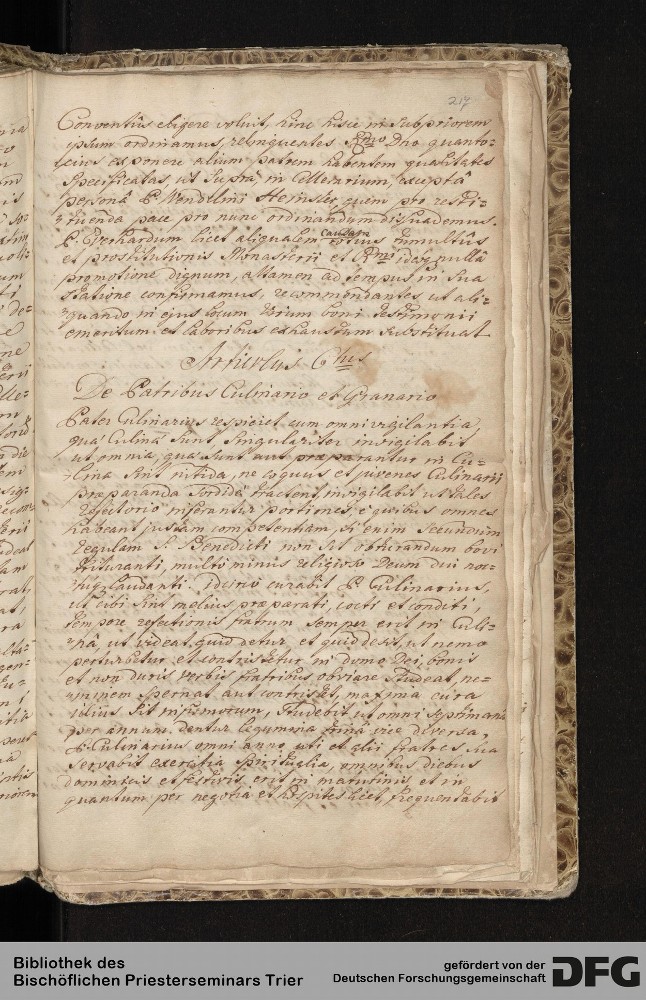 217
Conventûs eligere voluit, hinc hisce in subpriorem
ipsum ordinamus, relinquentes Rmo Dno quanto-
cius exponere alium patrem habentem qualitates
Specificatas, ut supra, in Cellerarium, exceptâ
personâ P. Wendelini Heinsler, quem pro resti-
tuenda pace pro nunc ordinandum dissuademus.
P. Everhardum licet aliqualem causam totius tumultûs
et prostitutionis Monasterii et Rmi ideoq nullâ
promotione dignum, attamen ad tempus in sua
statione confirmamus, recommendantes, ut ali-
quando in ejus locum virum boni testimonii
emeritum et laboribus exhaustum substituat
Articulus 6tus
De Patribus Culinario et Granario
Pater Culinarius respiciet cum omni vigilantia,
quæ Culinæ sunt, singulariter invigilabit
ut omnia, quæ sunt aut præparantur in Cu-
lina sint nitida, ne coquus et juvenes Culinarii
præparanda sordidè tractent, invigilabit ut tales
refectorio inferantur portiones, è quibus omnes
habeant justam competentiam, si enim secundum
regulam S. Benedicti non sit obturandum bovi
trituranti, multò minus religioso Deum diu noc-
tuq laudanti. idcirco curabit P. Culinarius,
ut cibi sint melius præparati, cocti et conditi,
tempore refectionis fratrum semper erit in Culi-
nâ, ut videat, quid detur et quid desit, ut nemo
perturbetur et contristetur in domo Dei, bonis
et non duris verbis fratribus obviare studeat, ne-
minem spernat aut contristet, maxima cura
illius sit infirmorum, studebit ut omni septimanâ
per annum dentur legumina unâ vice diversa,
P. Culinarius omni anno uti et alii fratres sua
servabit exercitia spiritualia, omnibus diebus
dominicis et festivis erit in matutinis et in
quantum per negotia et hospites licet, frequentabit
Bibliothek des
Bischöflichen Priesterseminars Trier
gefördert von der
Deutschen Forschungsgemeinschaft
DFG